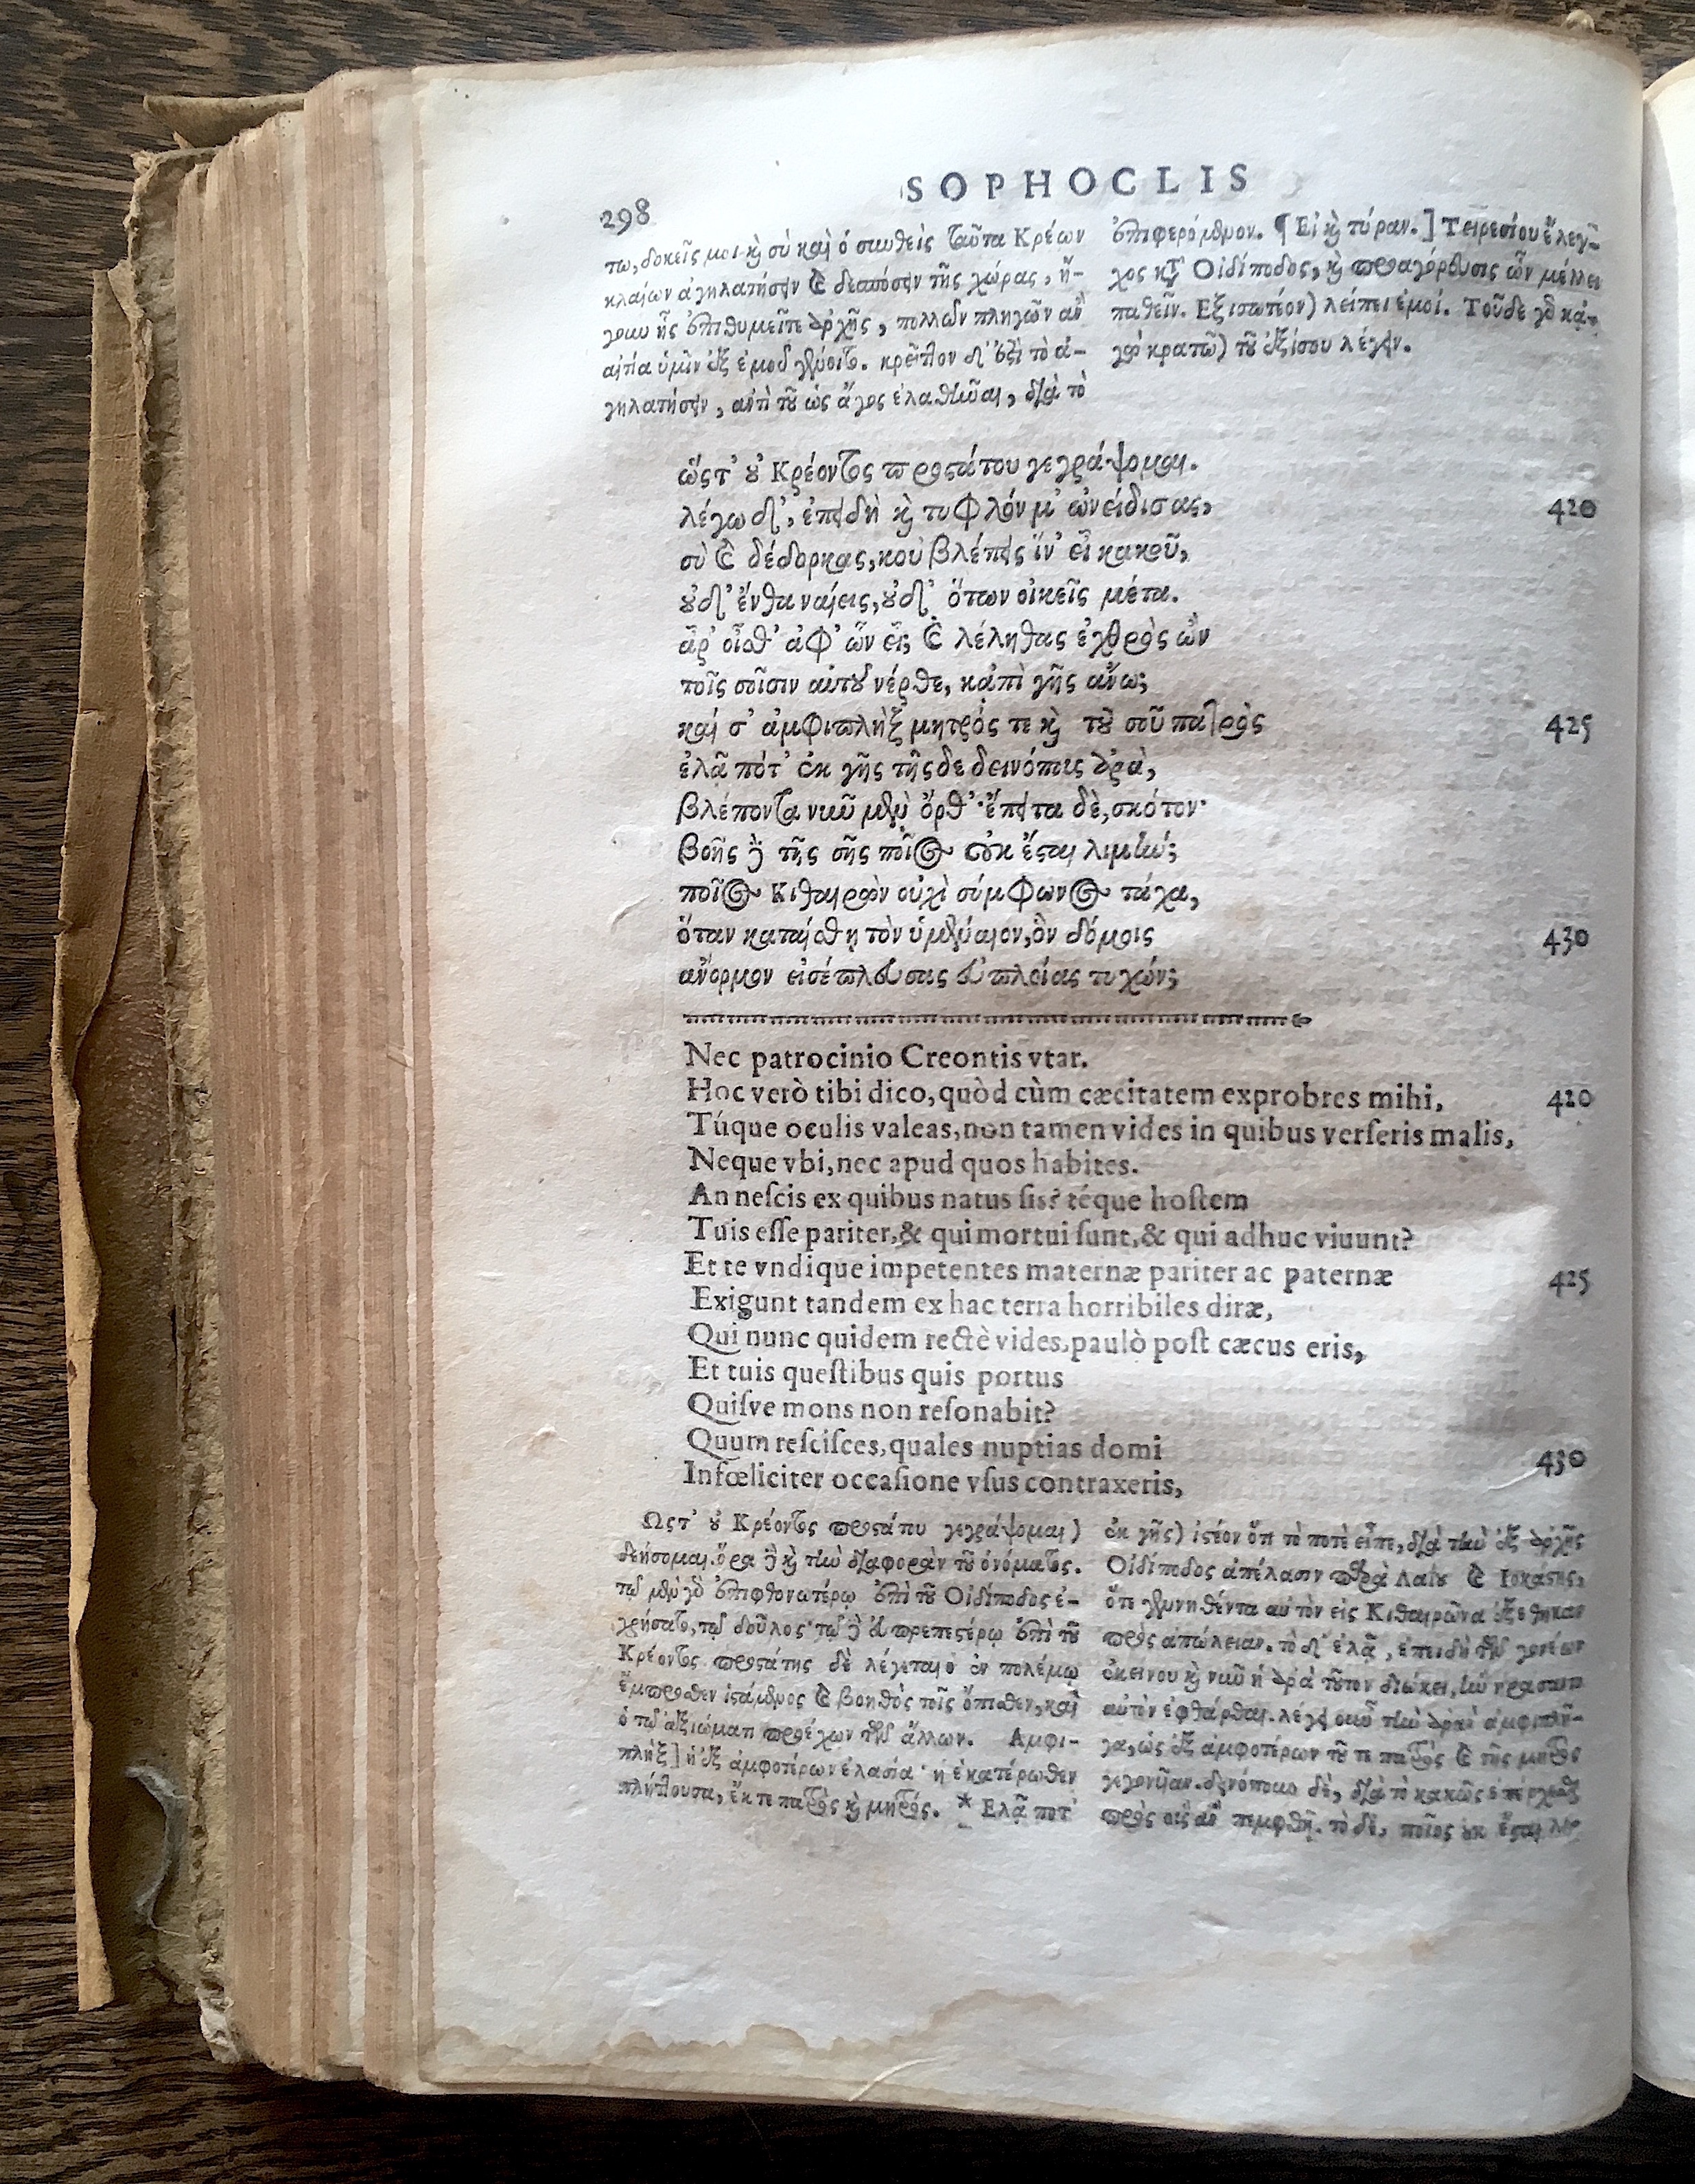 298
SOPHOCLIS
τω, δοκεῖς μοι καὶ σὺ καὶ ὁ συνθεὶς ταῦτα Κρέων
κλαίων ἀγηλατήσειν καὶ δεσπόσειν τῆς χώρας, ἤ-
γουν ἧς ἐπιθυμεῖτε ἀρχῆς, πολλῶν πληγῶν ἂν
αἰτία ὑμῖν ἐξ ἐμοῦ γένοιτο. κρεῖττον δ' ἐστὶ τὸ ἀ-
γηλατήσειν, ἀντὶ τοῦ ὡς ἄγος ἐλαθῆναι, διὰ τὸ
ἐπιφερόμενον. ¶ Εἰ καὶ τύραν.] Τειρεσίου ἔλεγ-
χος κατ' Οἰδίποδος, καὶ προαγόρευσις ὧν μέλλει
παθεῖν. Εξισωτέον) λείπει ἐμοί. Τοῦδε γὸ κἀ-
γὼ κρατῶ) τοῦ ἐξίσου λέγειν.
ὥςτ' οὐ Κρέοντος προστάτου γεγράψομαι.
λέγω δ', ἐπειδὴ καὶ τυφλόν μ' ὠνείδισας, 420
σὺ καὶ δέδορκας, κοὐ βλέπεις ἵν' εἶ κακοῦ,
οὐδ' ἔνθα ναίεις, οὐδ' ὅτων οἰκεῖς μέτα.
ἆρ' οἶσθ' ἀφ' ὧν εἶ; καὶ λέληθας ἐχθρὸς ὢν
τοῖς σοῖσιν αὐτοῦ νέρθε, κἀπὶ γῆς ἄνω;
καί σ' ἀμφιπλὴξ μητρός τε καὶ τοῦ σοῦ πατρὸς 425
ἐλᾷ πότ' ἐκ γῆς τῆςδε δεινόπους ἀρὰ,
βλέποντα νῦν μὲν ὄρθ'· ἔπειτα δὲ, σκότον·
βοῆς δὲ τῆς σῆς ποῖος οὐκ ἔσται λιμὴν;
ποῖος Κιθαιρὼν οὐχὶ σύμφωνος τάχα,
ὅταν καταίσθῃ τὸν ὑμέναιον, ὃν δόμοις 430
ἄνορμον εἰσέπλευσας εὐπλοίας τυχών;
Nec patrocinio Creontis vtar.
Hoc verò tibi dico, quòd cùm cæcitatem exprobres mihi, 420
Túque oculis valeas, non tamen vides in quibus verſeris malis,
Neque vbi, nec apud quos habites.
An neſcis ex quibus natus ſis? téque hoſtem
Tuis eſſe pariter, & qui mortui ſunt, & qui adhuc viuunt?
Et te vndique impetentes maternæ pariter ac paternæ 425
Exigunt tandem ex hac terra horribiles diræ,
Qui nunc quidem rectè vides, paulò poſt cæcus eris,
Et tuis queſtibus quis portus
Quiſve mons non reſonabit?
Quum reſciſces, quales nuptias domi 430
Infœliciter occaſione vſus contraxeris,
Ωςτ' οὐ Κρέοντος προστάτου γεγράψομαι)
δεήσομαι. ὅρα δὲ καὶ τὴν διαφορὰν τοῦ ὀνόματος.
τῷ μὲν γὸ ἐπιφθονωτέρῳ ἐπὶ τοῦ Οἰδίποδος ἐ-
χρήσατο, τῷ δοῦλος· τῷ δὲ εὐπρεπεστέρῳ ἐπὶ τοῦ
Κρέοντος προστάτης δὲ λέγεται ὁ ἐν πολέμῳ
ἔμπροσθεν ἱστάμενος καὶ βοηθὸς τοῖς ὄπισθεν, καὶ
ὁ τῷ ἀξιώματι προέχων τῶν ἄλλων. Αμφι-
πλήξ] ἡ ἐξ ἀμφοτέρων ἐλασία· ἡ ἑκατέρωθεν
πλήττουσα, ἔκ τε πατρὸς καὶ μητρός. * Ελᾷ ποτ'
ἐκ γῆς) ἰστέον ὅτι τὸ ποτὲ εἶπε, διὰ τὴν ἐξ ἀρχῆς
Οἰδίποδος ἀπέλασιν παρὰ Λαΐου καὶ Ιοκάστης,
ὅτε γεννηθέντα αὐτὸν εἰς Κιθαιρῶνα ἐξέθηκαν
πρὸς ἀπώλειαν. τὸ δ' ἐλᾷ, ἐπειδὴ τῶν γονέων
ἐκείνου καὶ νῦν ἡ ἀρὰ τοῦτον διώκει,
αὐτὸν ἐφθάρθαι. λέγει οὖν τὴν ἀρὰν ἀμφιπλῆ-
γα, ὡς ἐξ ἀμφοτέρων τοῦ τε πατρὸς καὶ τῆς μητρὸς
γεγονυῖαν. δεινόπουν δὲ, διὰ τὸ κακῶς ἐπέρχεσθαι
πρὸς οὓς ἂν πεμφθῇ. τὸ δὲ, ποῖος οὐκ ἔσται λι-